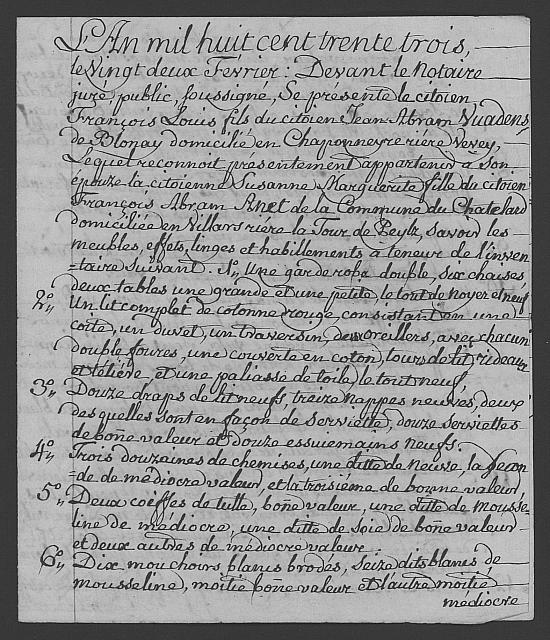 L'An mil huit cent trente trois,
le Vingt deux Février : Devant le Notaire
juré, public, soussigné, Se présente le citoien,
François Louis fils du citoien Jean Abram Vuadens,
de Blonay domicilié en Chaponneyre riére Vevey,
Lequel reconnoit présentement appartenir à Son
épouze la citoienne Susanne Marguerite fille du citoien
François Abram Anet de la Commune du Chatelard
domiciliée en Villars riére la Tour de Peylz, savoir les
meubles, effets, linges et habillements à teneur de l'inven
=taire suivant. 1°,, Une garderobe double, six chaises,
deux tables une grande et une petite, le tout de noyer et neuf
2°,, Un lit complet de cotonne rouge, consistant en une
coite, un duvet, un traversin, deux oreillers, avec chacun
double fourres, une couverte en coton, tours de lit, rideaux
et têtiére, et une paliasse de toile, le tout neuf,
3°,, Douze draps de lit neufs, treize nappes neuves, deux
desquelles sont en façon de serviette, douze serviettes
de boñe valeur et douze essuiemains neufs.
4°,, Trois douzaines de chemises, une ditte de neuve, la secon
=de de médiocre valeur, et la troisiéme de bonne valeur,
5°,, Deux coëffes de tulle, boñe valeur, une ditte de mousse=
line de médiocre, une ditte de soie de boñe valeur
et deux autres de médiocre valeur
6°,, Dix mouchoirs blancs brodés, seize dits blancs de
mousseline, moitié boñe valeur et l'autre moitié
médiocre